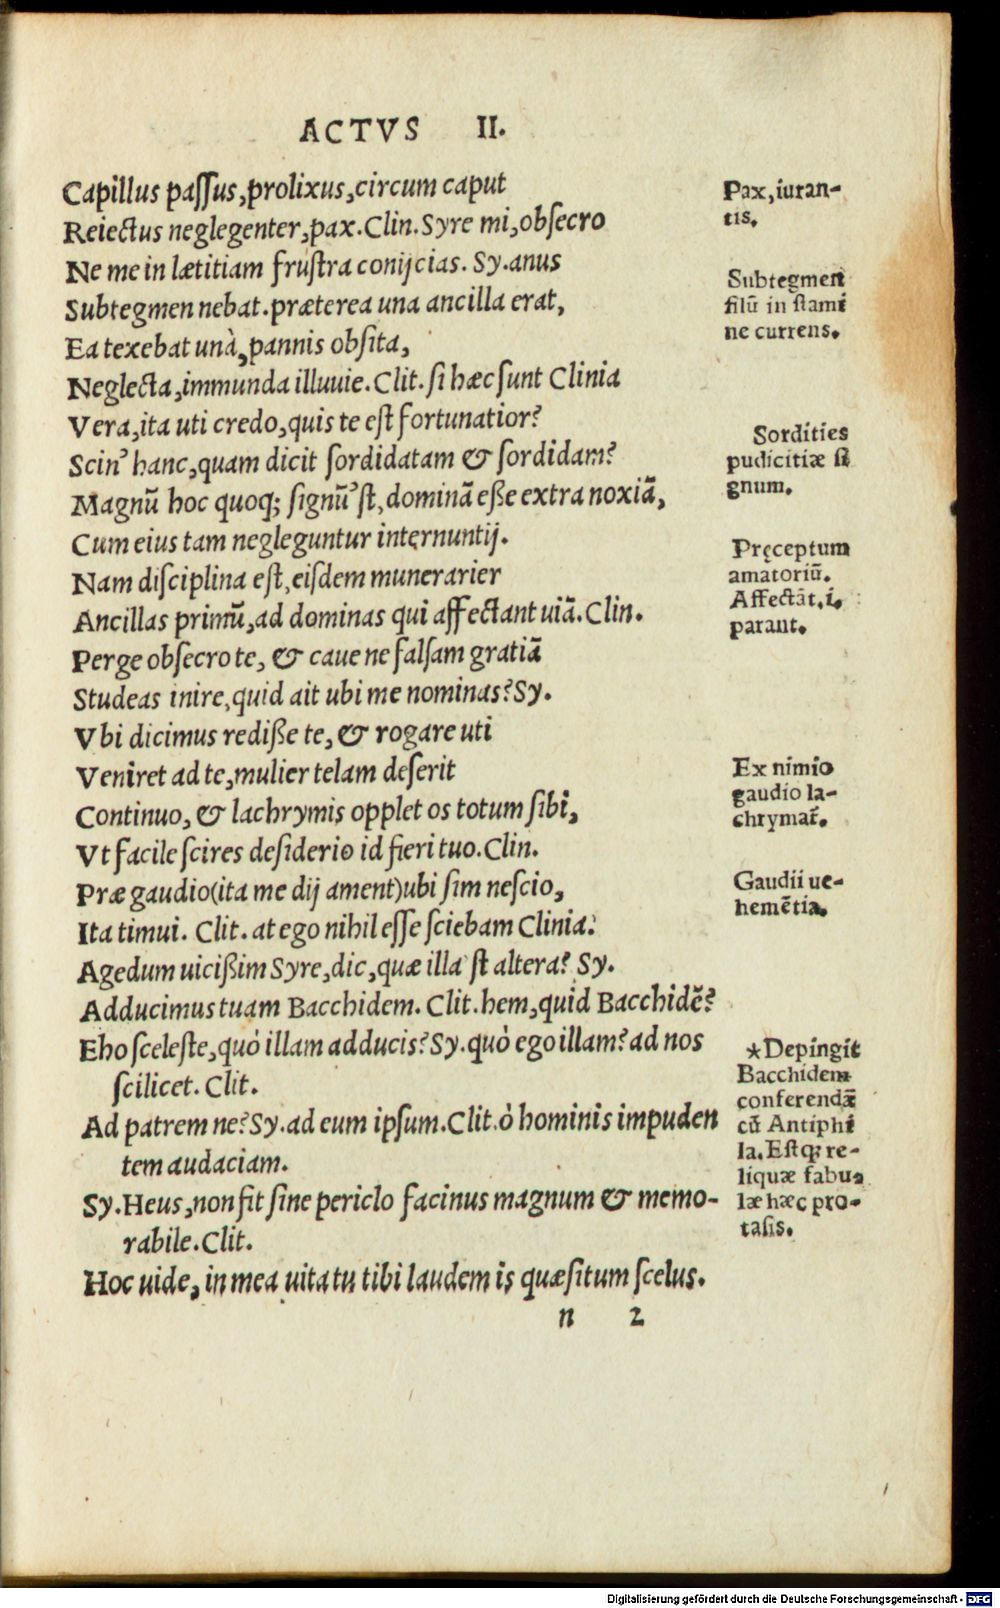 ACTVS II.
Capillus passus, prolixus, circum caput
Reiectus neglegenter, pax. Clin. Syre mi, obsecro
Ne me in lætitiam frustra conijcias. Sy. anus
Subtegmen nebat. præterea una ancilla erat,
Ea texebat unà, pannis obsita,
Neglecta, immunda illuuie. Clit. si hæc sunt Clinia
Vera, ita uti credo, quis te est fortunatior?
Scin' hanc, quam dicit sordidatam & sordidam?
Magnū hoc quoq; signū'st, dominā eße extra noxiā,
Cum eius tam negleguntur internuntij.
Nam disciplina est, eisdem munerarier
Ancillas primū, ad dominas qui affectant uiā. Clin.
Perge obsecro te, & caue ne falsam gratiā
Studeas inire, quid ait ubi me nominas? Sy.
Vbi dicimus rediße te, & rogare uti
Veniret ad te, mulier telam deserit
Continuo, & lachrymis opplet os totum sibi,
Vt facile scires desiderio id fieri tuo. Clin.
Præ gaudio (ita me dij ament) ubi sim nescio,
Ita timui. Clit. at ego nihil esse sciebam Clinia.
Agedum uicißim Syre, dic, quæ illa st altera? Sy.
Adducimus tuam Bacchidem. Clit. hem, quid Bacchidē?
Eho sceleste, quò illam adducis? Sy. quò ego illam? ad nos
scilicet. Clit.
Ad patrem ne? Sy. ad eum ipsum. Clit. ò hominis impuden
tem audaciam.
Sy. Heus, non fit sine periclo facinus magnum & memo-
rabile. Clit.
Hoc uide, in mea uita tu tibi laudem is quæsitum scelus.
n 2
Pax, iuran-
tis.
Subtegmen
filū in stami
ne currens.
Sordities
pudicitiæ si
gnum.
Pręceptum
amatoriū.
Affectāt. i.
parant.
Ex nimio
gaudio la-
chrymar̃.
Gaudii ue-
hemētia.
*Depingit
Bacchidem
conferendā
cū Antiphi
la. Estq; re-
liquæ fabu-
læ hæc pro-
tasis.
Digitalisierung gefördert durch die Deutsche Forschungsgemeinschaft - DFG